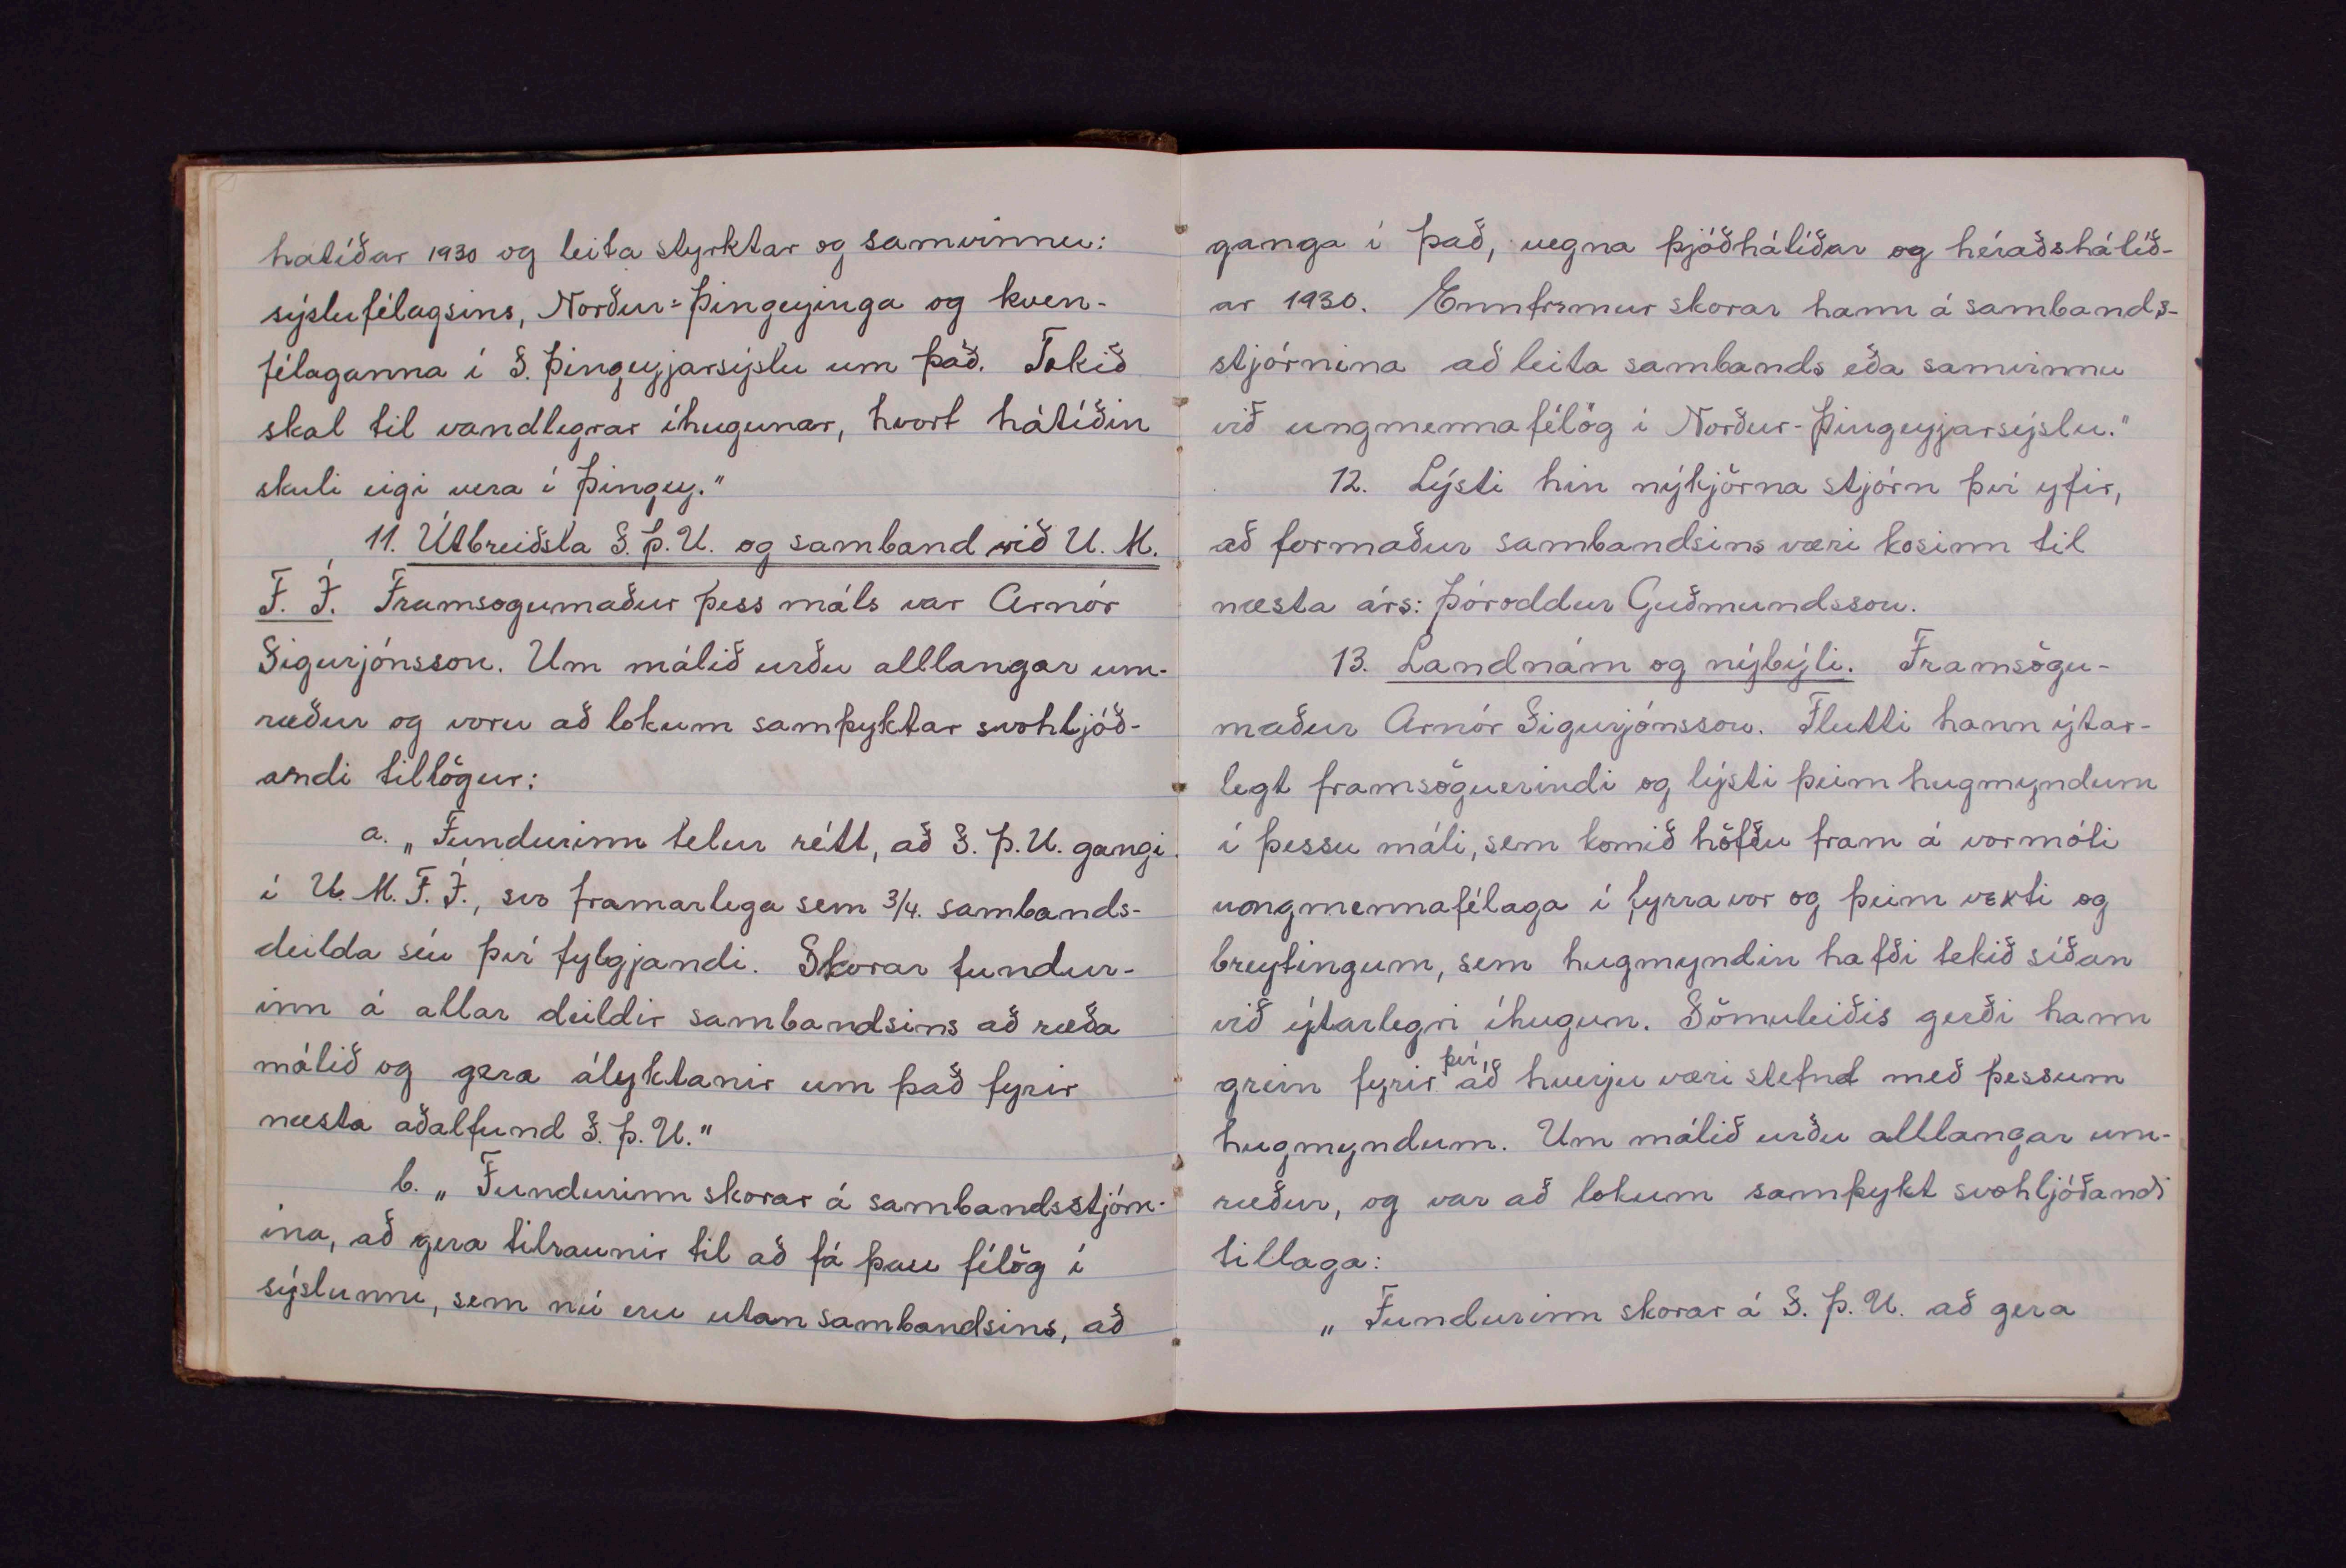 hatíðar 1930 og leita styrktar og samvinnu:
sýslufélagsins, Norður-Þingeyinga og kven-
félaganna í S. Þingeyjarsýslu um það. Tekið
skal til vandlegrar íhugunar, hvort hátíðin
skuli eigi vera í Þingey."
11. Útbreiðsla S.Þ.U. og samband við U.M.
F.Í. Framsogumaður þess máls var Arnór
Sigurjónsson. Um málið urðu alllangar um-
ræður og voru að lokum samþyktar svohljóð-
andi tillögur:
a. „Fundurinn telur rétt, að S.Þ.U. gangi
í U.M.F.Í., svo framarlega sem 3/4. sambands-
deilda séu því fylgjandi. Skorar fundur-
inn á allar deildir sambandsins að ræða
málið og gera ályktanir um það fyrir
næsta aðalfund S.Þ.U."
b. „Fundurinn skorar á sambandsstjórn-
ina, að gera tilraunir til að fá þau félög í
sýslunni, sem nú eru utan sambandsins, að
ganga í það, vegna þjóðhátíðar og héraðshátíð-
ar 1930. Ennfremur skorar hann á sambands-
stjórnina að leita sambands eða samvinnu
við ungmennafélög í Norður-Þingeyjarsýslu."
12. Lýsti hin nýkjörna stjórn því yfir,
að formaður sambandsins væri kosinn til
næsta árs: Þóroddur Guðmundsson.
13. Landnám og nýbýli. Framsögu-
maður Arnór Sigurjónsson. Flutti hann ýtar-
legt framsöguerindi og lýsti þeim hugmyndum
í þessu máli, sem komið höfðu fram á vormóti
ungmennafélaga í fyrra vor og þeim vexti og
breytingum, sem hugmyndin hafði tekið síðan
við ýtarlegri íhugun. Sömuleiðis gerði hann
grein fyrir því, að hverju væri stefnd með þessum
hugmyndum. Um málið urðu alllangar um-
ræður, og var að lokum samþykt svohljóðandi
tillaga:
„Fundurinn skorar á S.Þ.U. að gera